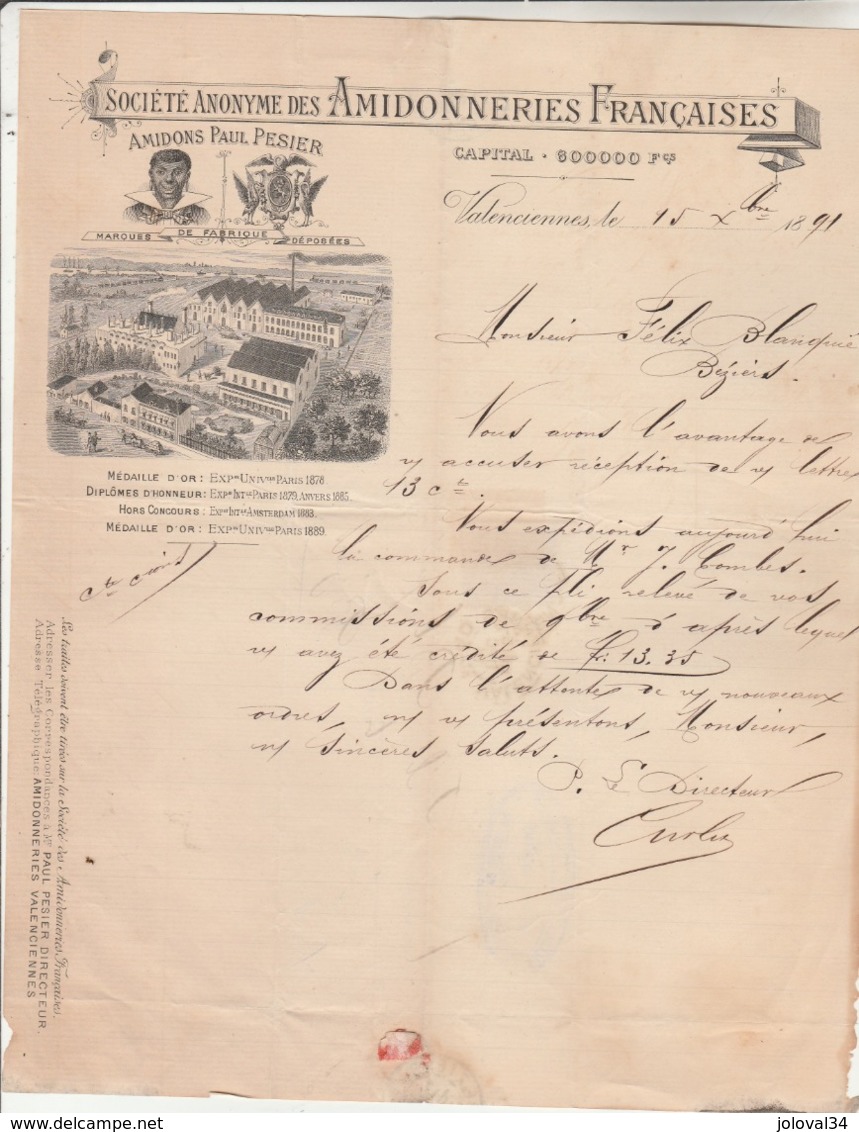 SOCIÉTÉ ANONYME DES AMIDONNERIES FRANÇAISES
AMIDONS PAUL PESIER
CAPITAL . 600000 Fcs
MARQUES DE FABRIQUE DÉPOSÉES
Valenciennes, le 15 Xbre 1891
Monsieur Félix Blanquié
Béziers.
Vous avons l'avantage de
vs accuser réception de vs lettre
13 ct.
Vous expédions aujourd'hui
la commande de Mr J. Combes.
Sous ce pli relevé de vos
commissions de 9bre d'après lequel
vs avez été crédité de Fr: 13.35
Dans l'attente de vs nouveaux
ordres, ns vs présentons, Monsieur,
ns sincères saluts.
P. Le Directeur
MÉDAILLE D'OR : EXPon UNIVlle PARIS 1878
DIPLÔMES D'HONNEUR : EXPon INTle PARIS 1879, ANVERS 1885.
HORS CONCOURS : EXPon INTle AMSTERDAM 1883.
MÉDAILLE D'OR : EXPon UNIVlle PARIS 1889.
Les traites doivent être tirées sur la Société des Amidonneries Françaises.
Adresser les Correspondances à Mr PAUL PESIER DIRECTEUR.
Adresse Télégraphique: AMIDONNERIES VALENCIENNES
delcampe.net
joloval34